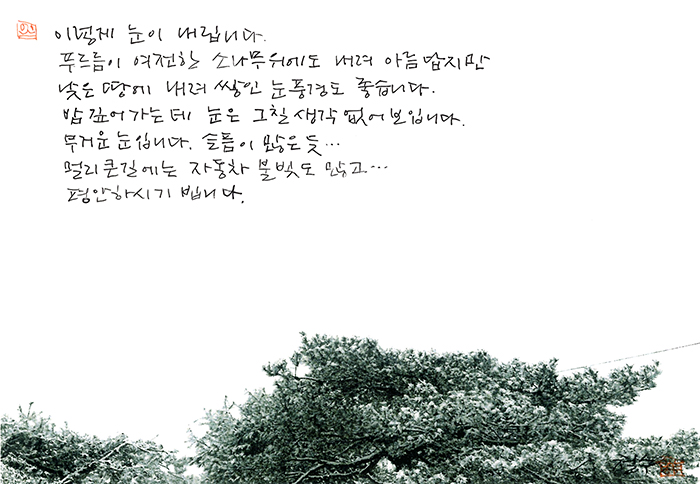 이렇게 눈이 내립니다.
푸르름이 여전한 소나무위에도 내려 아름답지만
낮은 땅에 내려 쌓인 눈풍경도 좋습니다.
밤 깊어가는데 눈은 그칠 생각 없어보입니다.
무거운 눈입니다. 슬픔이 많은 듯…
멀리 큰길에는 자동차 불빛도 많고…
평안하시기 빕니다.